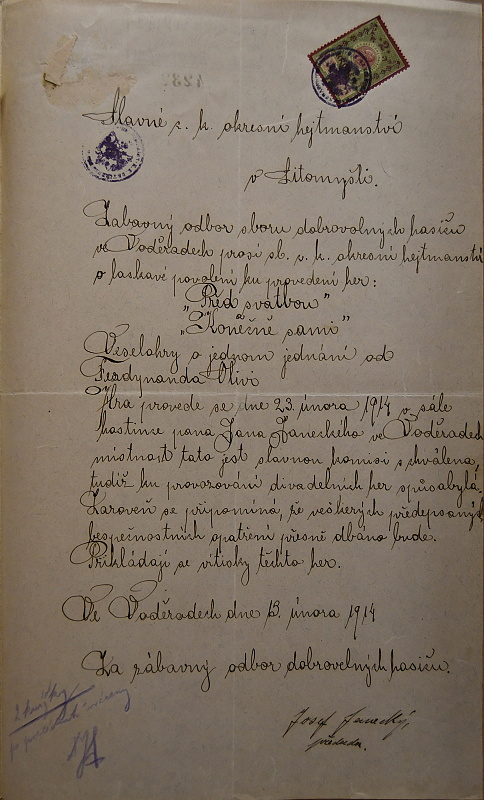 Slavné c. k. okresní hejtmanství
v Litomyšli.
Zábavný odbor sboru dobrovolných hasičů
ve Voděradech prosí sl. c. k. okresní hejtmanství
o laskavé povolení ku provedení her:
„Před svatbou"
„Konečně sami"
Veselohry o jednom jednání od
Ferdynanda Olivi
Hra provede se dne 23. února 1914 v sále
hostince pana Jana Janeckého ve Voděradech
místnost tato jest slavnou komisí schválena,
tudíž ku provozování divadelních her spůsobylá.
Zároveň se připomíná, že veškerých předepsaných
bezpečnostních opatření přesně dbáno bude.
Přikládají se výtisky těchto her.
Ve Voděradech dne 13. února 1914
Za zábavný odbor dobrovolných hasičů.
Josef Janecký,
předseda.